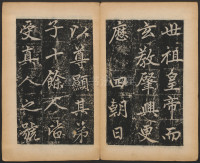 世祖皇帝而
玄教肇興更
應四朝日
以尊顯其弟
子十餘人皆
受真人之號